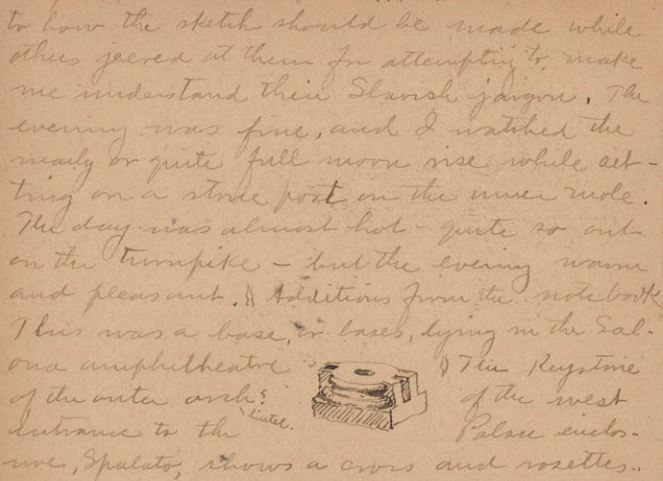 to how the sketch should be made while
others jeered at them for attempting to make
me understand their Slavish jargon. The
evening was fine, and I watched the
nearly or quite full moon rise while sit-
ting on a stone post on the inner mole.
The day was almost hot - quite so out
on the turnpike - but the evening warm
and pleasant. § Additions from the note book
This was a base, or bases, lying in the Sal-
ona amphitheatre § The Keystone
of the outer arch & of the west
lintel.
entrance to the Palace enclos-
ure, Spalato, shows a cross and rosettes..